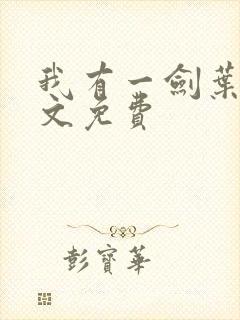 我有一劍葉
文免費
彭寶華